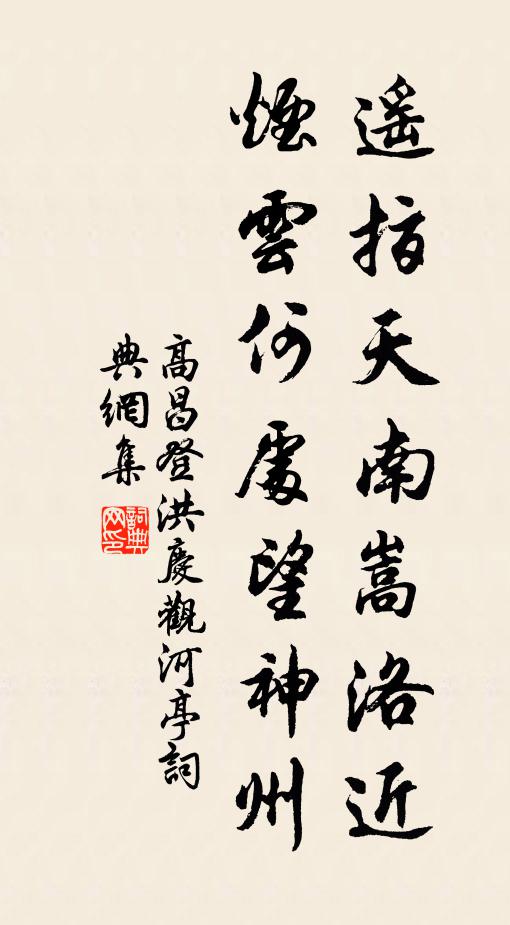 遥指天南嵩洛近
煙雲何處望神州
高昌登洪慶觀河亭詞
典網集
詞典網印